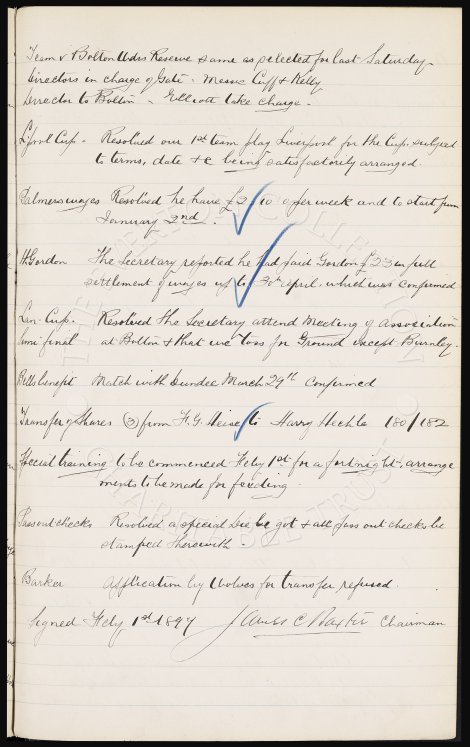 Team v Bolton Wdrs Reserve same as selected for last Saturday
Directors in charge of Gate - Messrs Cuff & Kelly
Director to Bolton - Elliott take charge.
L'pool Cup - Resolved our 1st team play Liverpool for the Cup subject
to terms, date &c being satisfactorily arranged.
Palmers wages Resolved he have £2/10 - per week and to start from
January 2nd.
Gordon The Secretary reported he had paid Gordon £23 in full
settlement of wages up to 30th April which was confirmed
Lan. Cup. Resolved the Secretary attend Meeting of Association
semi final at Bolton & that we toss for Ground except Burnley.
Bells benefit Match with Dundee March 29th confirmed
Transfer of Shares (3) from H.G. to Harry 180/182
Special training to be commenced Feby 1st for a fortnight, arrange
ments to be made for feeding.
Pass out checks Resolved a special Die be got & all pass out checks be
stamped therewith.
Barker Application by Wolves for transfer refused.
Signed Feby 1st 1897 James C Baxter Chairman